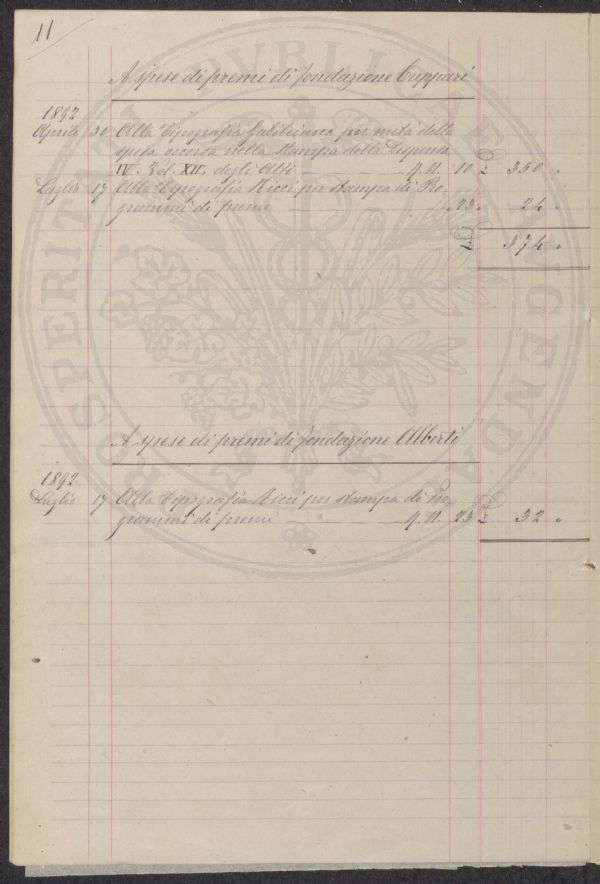 11
A spese di premi di fondazione Cuppari
1892
Aprile 30 Alla Tipografia Galileiana per metà della
spesa occorsa nella stampa della Dispensa
IV. Vol. XII. degli Atti — M. N. 10 £ 350 "
Luglio 17 Alla Tipografia Ricci per stampa di Pro
grammi di premi — " 23 " 24 "
£ 374 "
A spese di premi di fondazione Alberti
1892
Luglio 17 Alla Tipografia Ricci per stampa di Pro
grammi di premi — M. N. 23 £ 32 "
PROSPERITATI PVBLICAE AVGENDAE